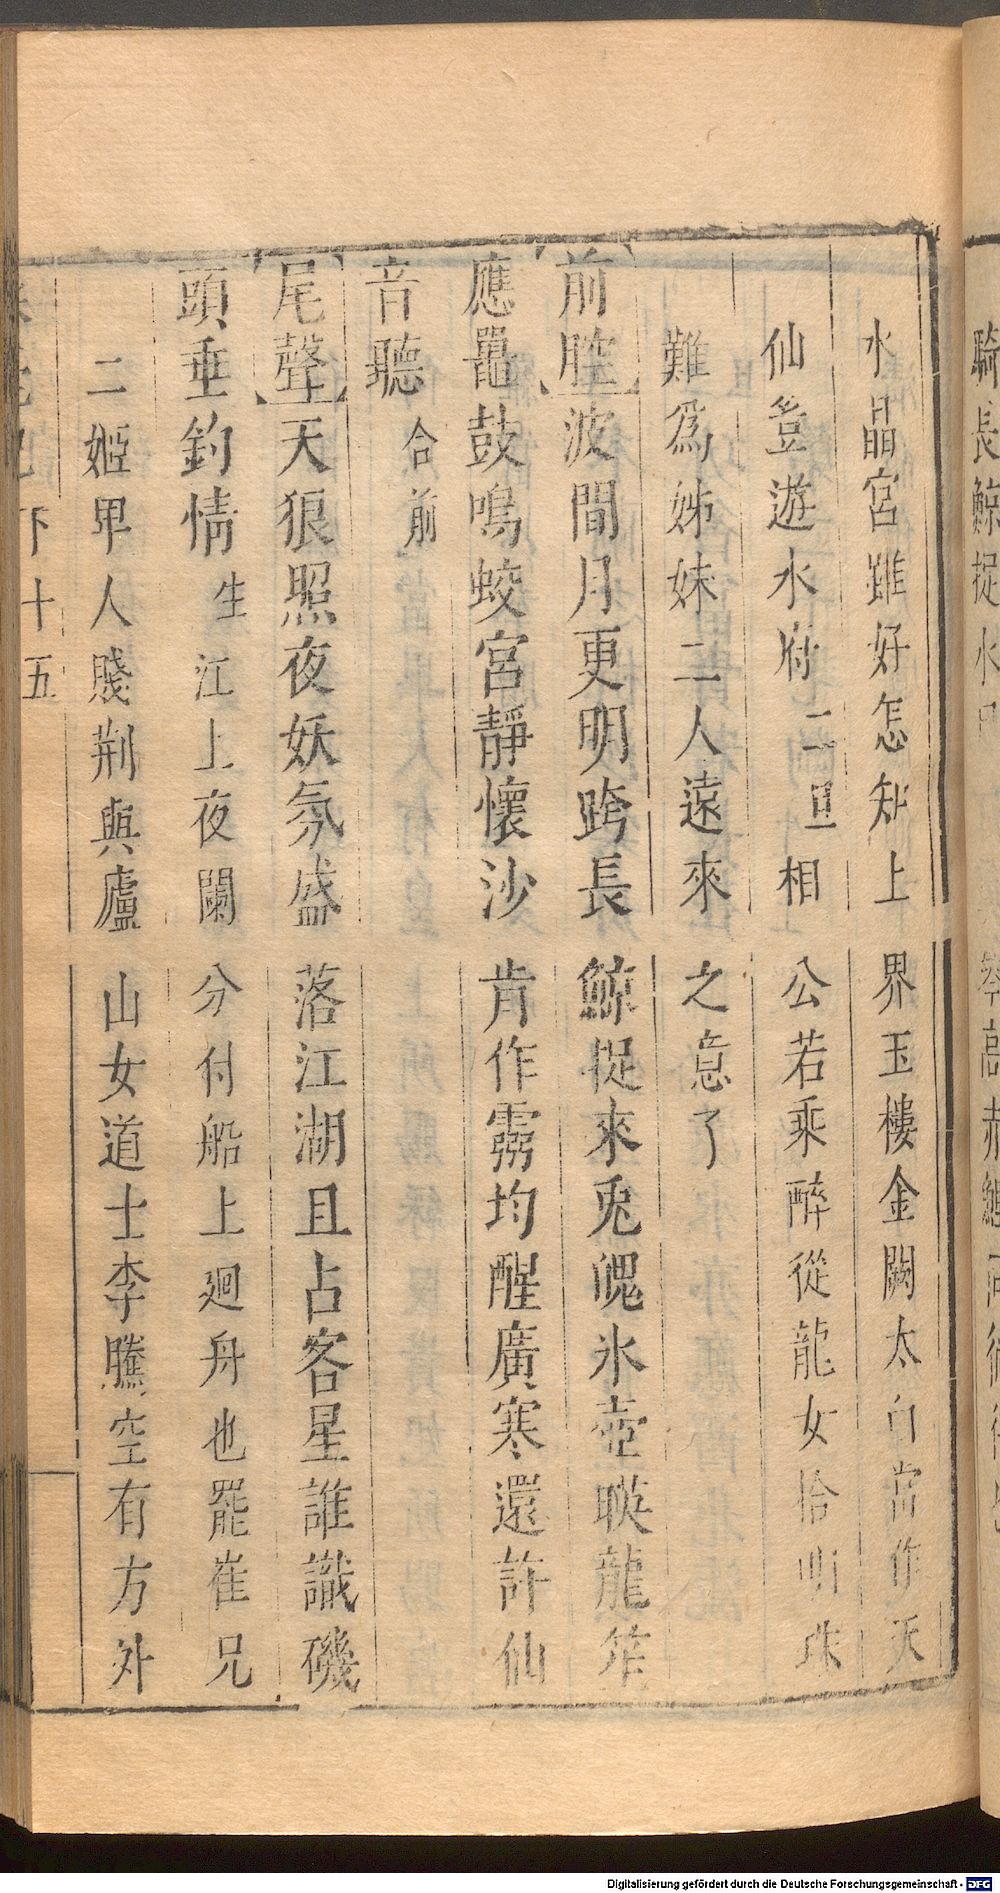 水晶宮雖好怎知上界玉樓金闕太白當作天
仙豈遊水府二旦相公若乘醉從龍女拾明珠
難爲姊妹二人遠來之意了
前腔波間月更明跨長鯨捉來兎魄氷壺暎龍笙
應鼉鼓鳴蛟宮靜懷沙肯作靈均醒廣寒還許仙
音聽合前
尾聲天狼照夜妖氛盛落江湖且占客星誰識磯
頭垂釣情生江上夜闌分付船上廻舟也罷崔兄
二姬甲人賤荆與廬山女道士李騰空有方外
下十五
騎長鯨捉水
Digitalisierung gefördert durch die Deutsche Forschungsgemeinschaft - DFG